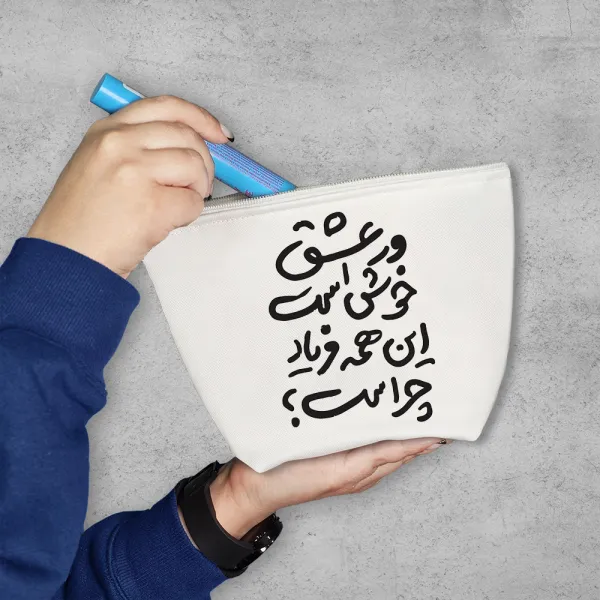 ور عشق
خوش است
این همه فریاد
چراست؟